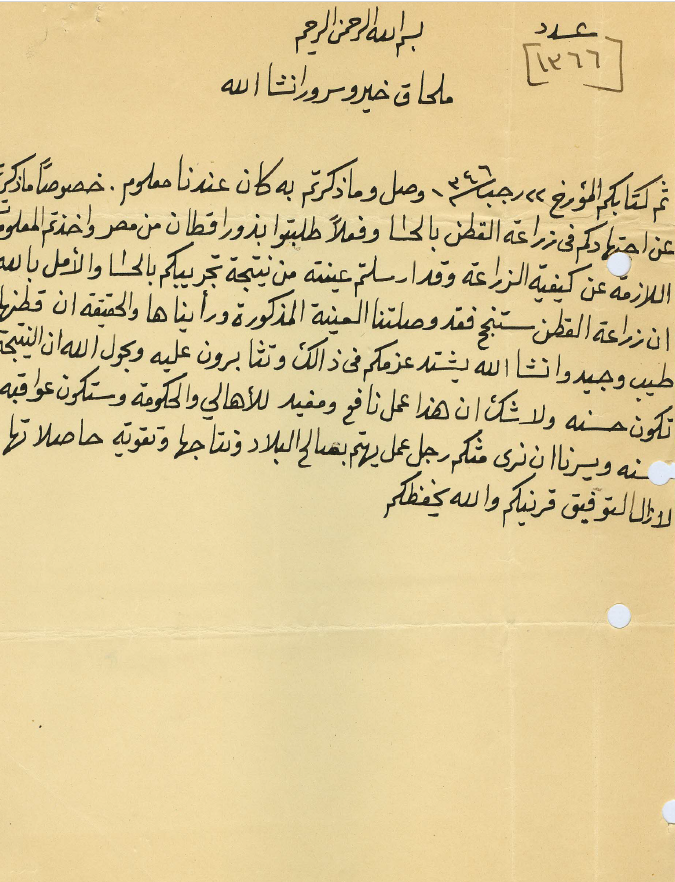 بسم الله الرحمن الرحيم
عدد
[١٣٦٦]
ملحاق خير وسرور انشا الله
ثم كتابكم المؤرخ ٢٢ رجب ١٣٤٦ وصل وما ذكرتم به كان عندنا معلوم . خصوصاً ما ذكرتم
عن اجتهادكم في زراعة القطن بالحسا وفعلاً طلبتوا بذور اقطان من مصر واخذتم المعلومات
اللازمة عن كيفية الزراعة وقد ارسلتم عينة من نتيجة تجريبكم بالحسا والأمل بالله
ان زراعة القطن ستنجح فقد وصلتنا العينة المذكورة ورأيناها والحقيقة ان قطنها
طيب وجيد وانشا الله يشتد عزمكم في ذالك وتثابرون عليه وبحول الله ان النتيجة
تكون حسنه ولا شك ان هذا عمل نافع ومفيد للأهالي والحكومة وستكون عواقبه
حسنه ويسرنا ان نرى مثلكم رجل عمل يهتم بصالح البلاد ونتاجها وتقوية حاصلاتها
لازال التوفيق قرينكم والله يحفظكم